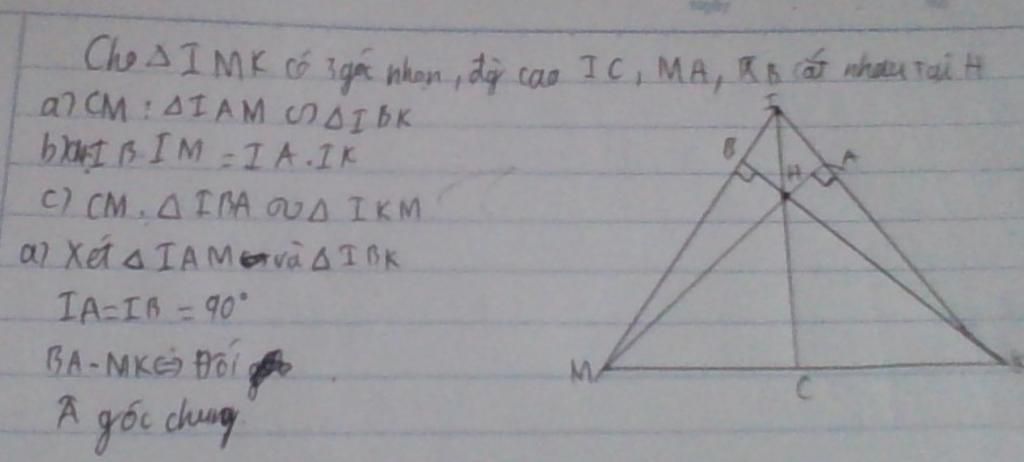 Cho Δ IMK có 3 góc nhọn, đg cao IC, MA, KB cắt nhau tại H
a) CM: Δ IAM ∽ Δ IBK
b) CM IB IM = IA. IK
c) CM. Δ IBA ∽ Δ IKM
a) Xét Δ IAM và Δ IBK
IA = IB = 90°
BA - MK ⇔ Đối
A góc chung
I
B
H
A
M
C